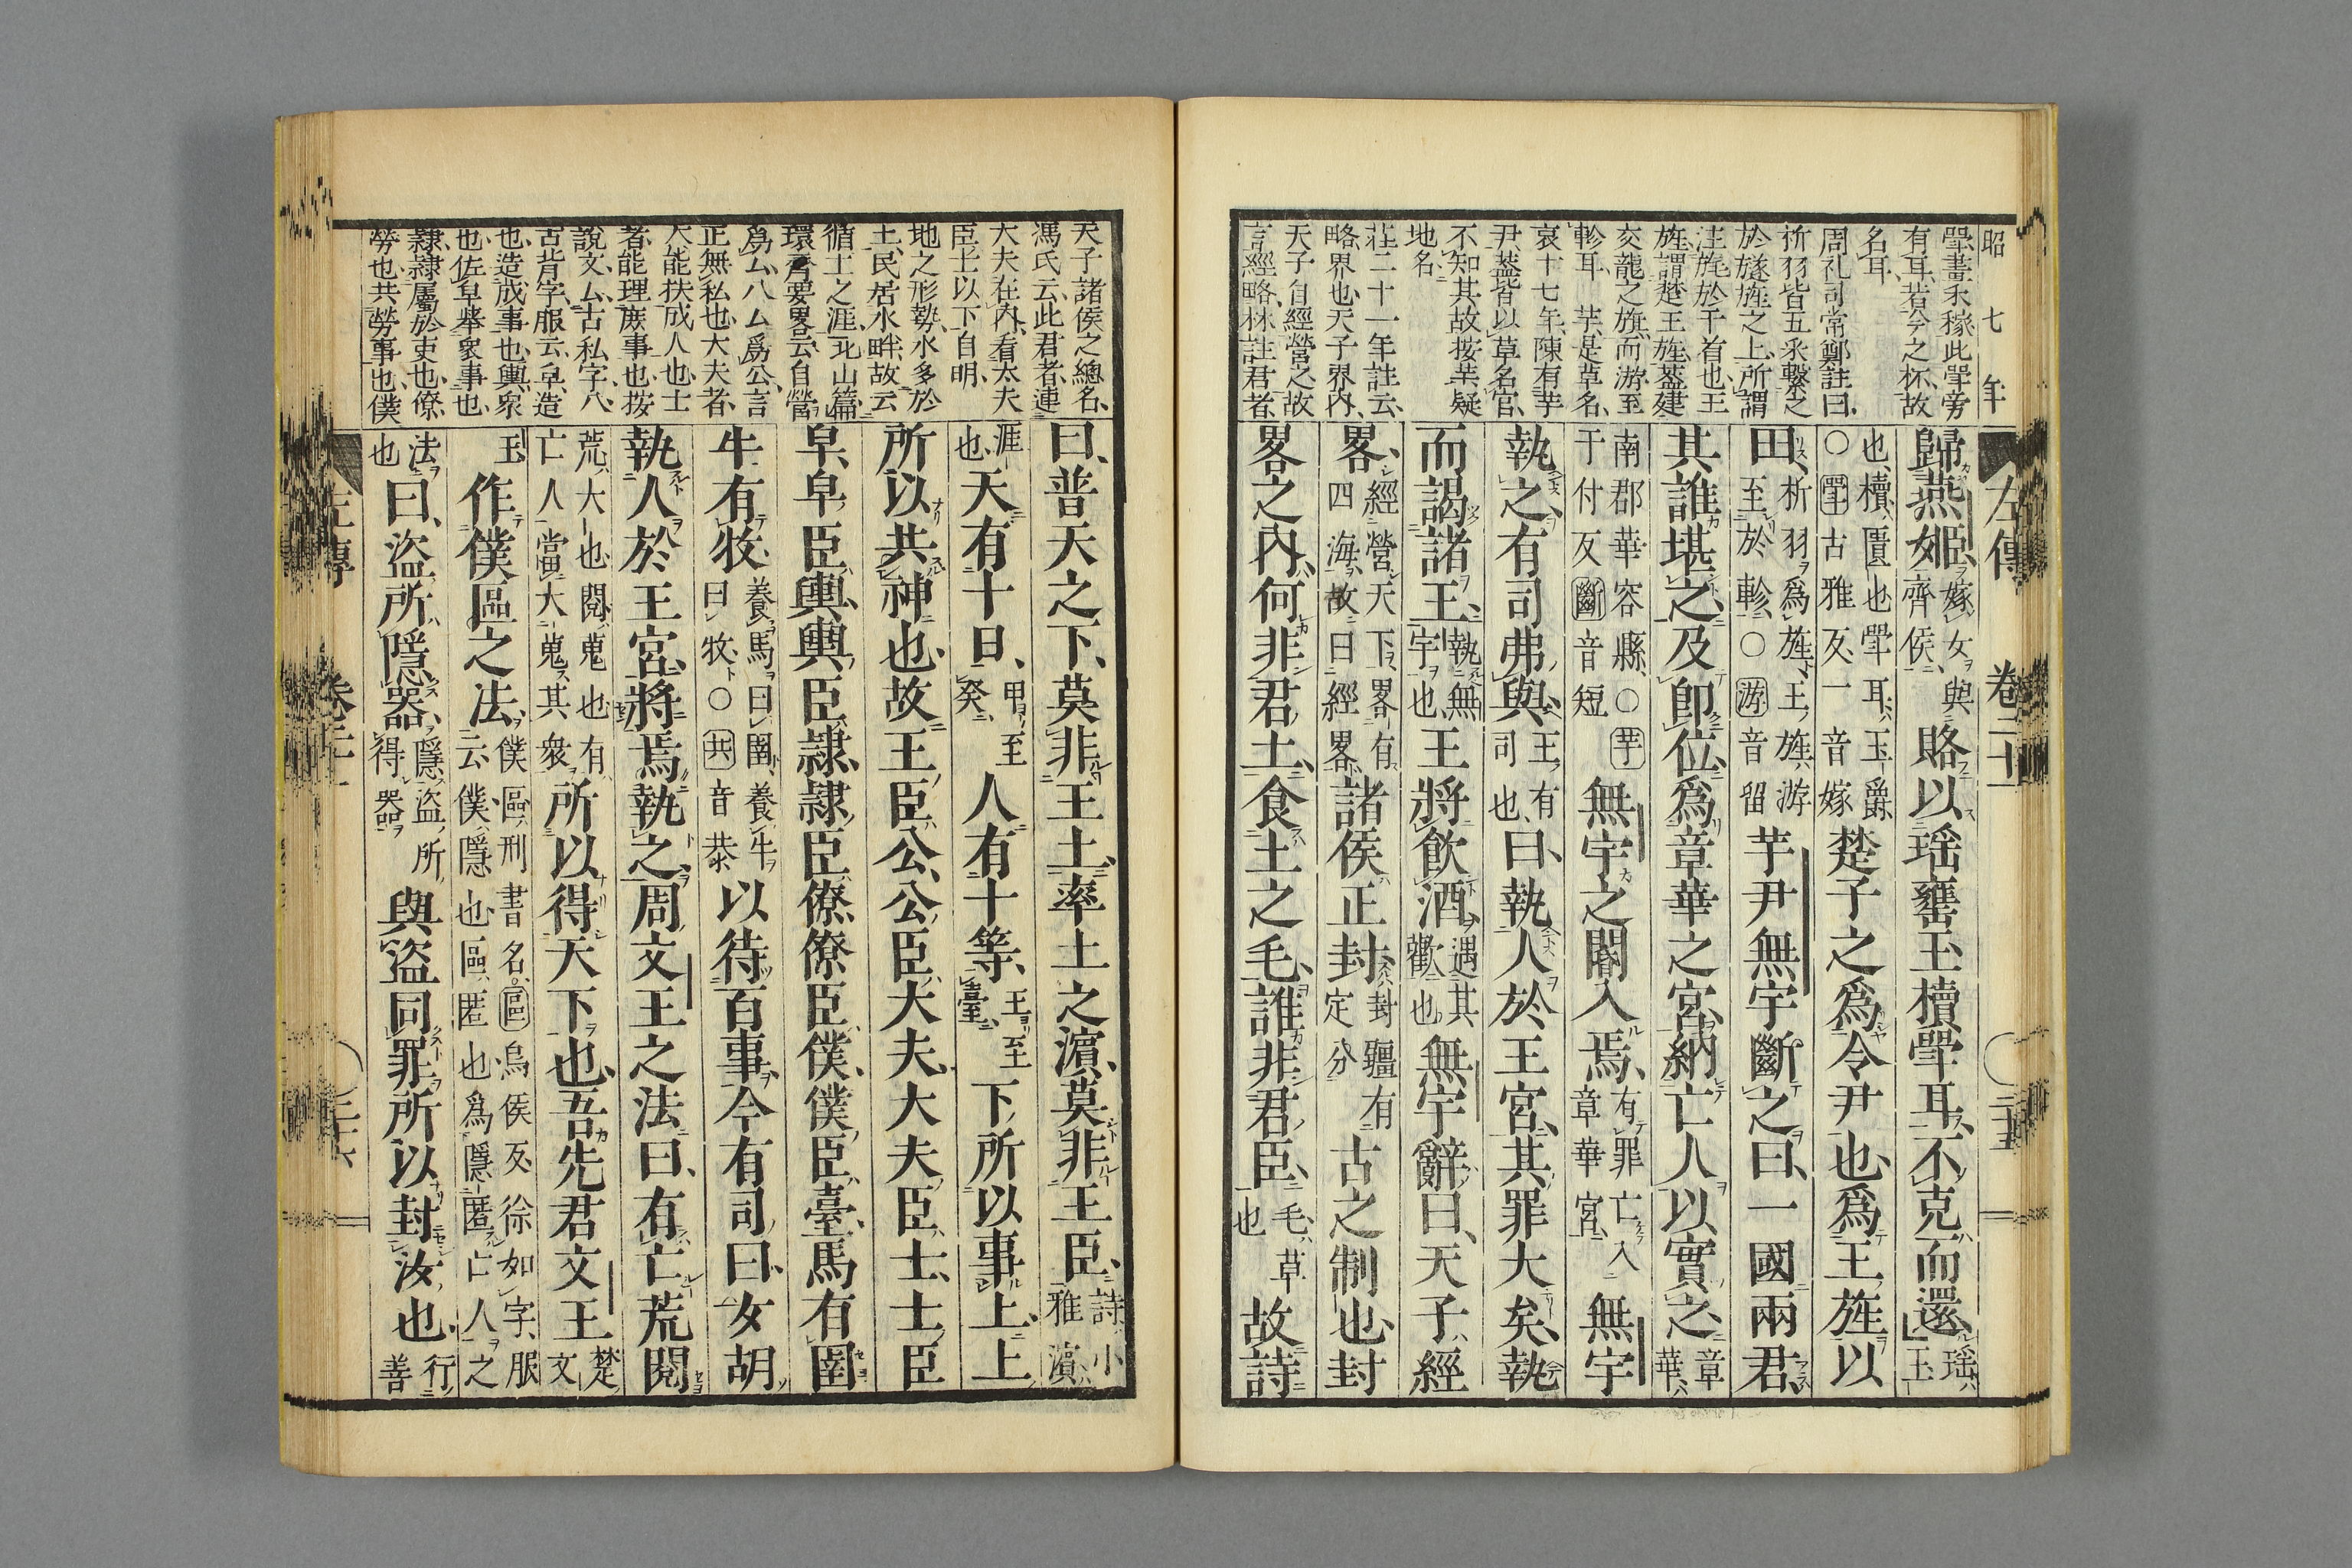 昭 七年
左傳 卷二十一 三十五
斝畫禾稼此斝旁
有耳若今之杯故
名耳
周礼司常鄭註曰
析羽皆五采繫之
於旞旌之上所謂
注旄於干首也王
旌謂楚王旌葢建
交龍之旂而游至
軫耳 芋是草名
哀十七年陳有芋
尹葢皆以草名官
不知其故按芋疑
地名
莊二十一年註云
略界也天子界内
天子自經營之故
言經略林註君者
歸燕姬嫁女與齊侯賂以瑤罋玉櫝斝耳不克而還瑤玉
也櫝匱也斝耳玉爵○斝古雅反一音嫁楚子之爲令尹也爲王旌以
田析羽爲旌王旌游至於軫○游音留芋尹無宇斷之曰一國兩君
其誰堪之及即位爲章華之宮納亡人以實之章華
南郡華容縣○芋于付反斷音短無宇之閽入焉有罪亡入章華宮無宇
執之有司弗與王有司也曰執人於王宮其罪大矣執
而謁諸王執無宇也王將飲酒遇其歡也無宇辭曰天子經
畧經營天下畧有四海故曰經畧諸侯正封封疆有定分古之制也封
畧之内何非君土食土之毛誰非君臣毛草也故詩
天子諸侯之總名
馮氏云此君者連
大夫在内看太夫
臣士以下自明
地之形勢水多於
土民居水畔故云
循土之涯 北山篇
環齊要畧云自營
爲厶八厶爲公言
正無私也大夫者
大能扶成人也士
者能理庶事也按
說文厶古私字八
古背字服云皁造
也造成事也輿衆
也佐皁舉衆事也
隸隸屬於吏也僚
勞也共勞事也僕
曰普天之下莫非王土率土之濵莫非王臣詩小雅濵
涯也天有十日甲至癸人有十等王至臺下所以事上上
所以共神也故王臣公公臣大夫大夫臣士士臣
皁皁臣輿輿臣隸隸臣僚僚臣僕僕臣臺馬有圉
牛有牧養馬曰圉養牛曰牧○共音恭以待百事今有司曰女胡
執人於王宮將焉執之周文王之法曰有亡荒閱
荒大也閱蒐也有亡人當大蒐其衆所以得天下也吾先君文王楚文
王作僕區之法僕區刑書名區烏侯反徐如字服云僕隱也區匿也爲隱匿亡人之
法也曰盜所隱器隱盜所得器與盜同罪所以封汝也行善
左傳 卷二十一 三十六